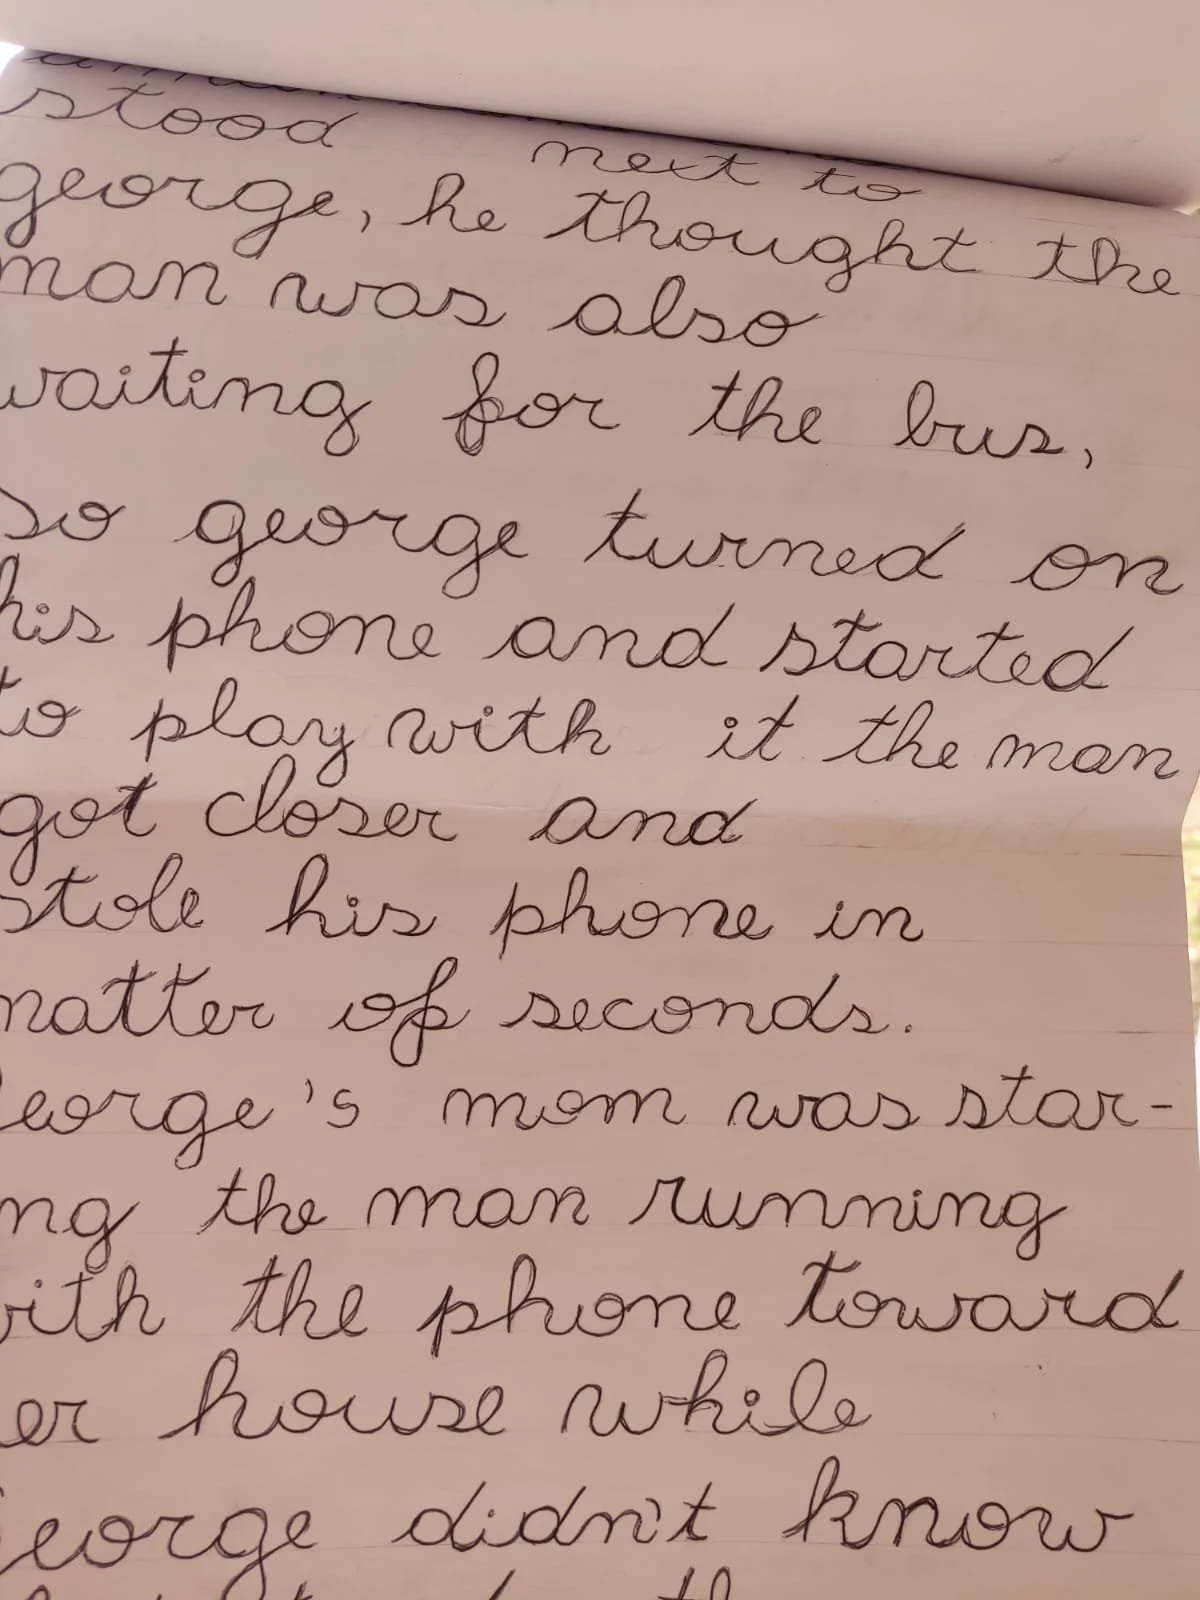 stood next to
george, he thought the
man was also
waiting for the bus,
so george turned on
his phone and started
to play with it the man
got closer and
stole his phone in
matter of seconds.
eorge's mom was star-
ng the man running
ith the phone toward
er house while
george didn't know